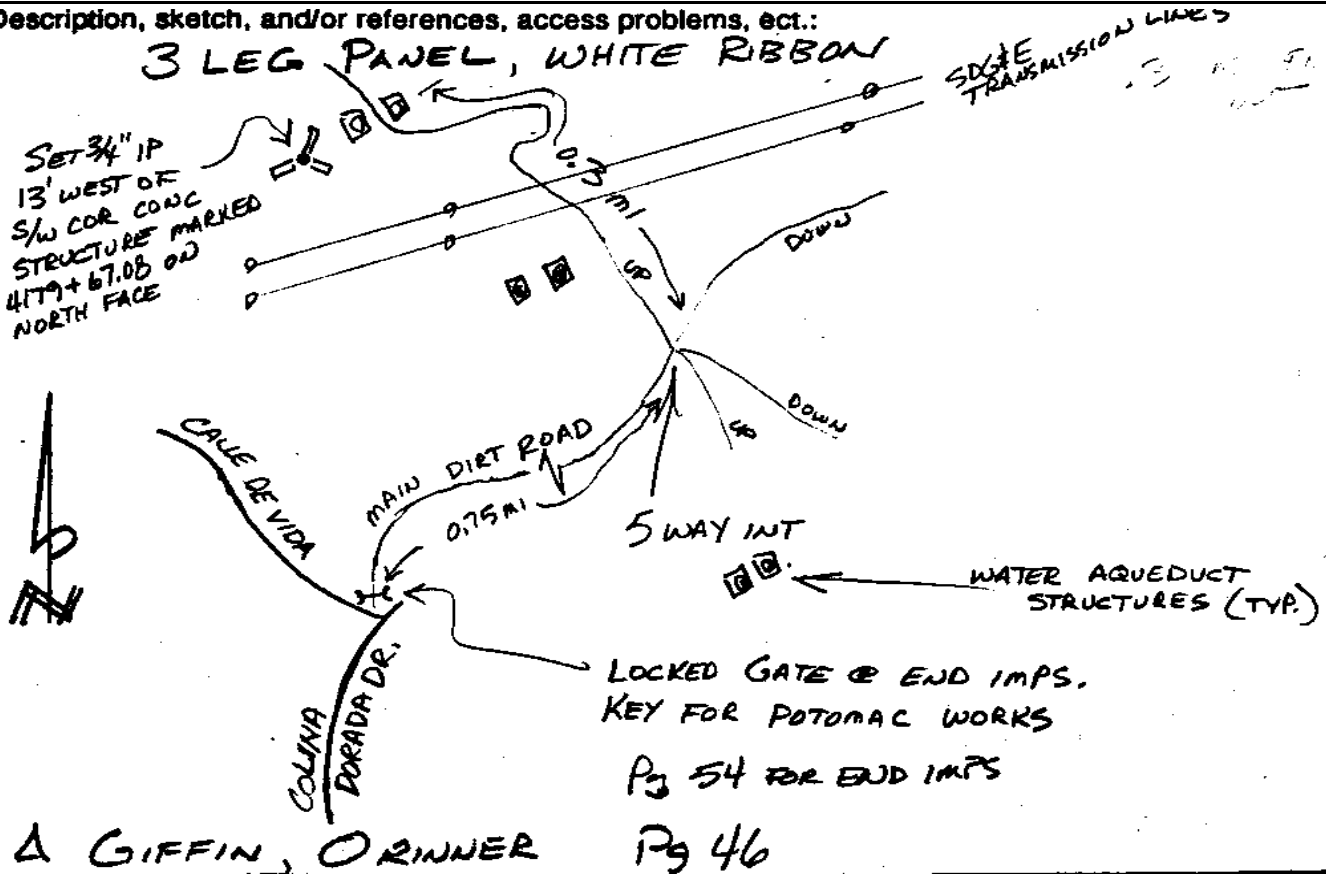 Description, sketch, and/or references, access problems, ect.:
3 LEG PANEL, WHITE RIBBON
SDG&E
TRANSMISSION LINES
SET 3/4" IP
13' WEST OF
S/W COR CONC
STRUCTURE MARKED
4179+67.08 ON
NORTH FACE
0.3 MI
UP
DOWN
DOWN
UP
CALLE DE VIDA
MAIN DIRT ROAD
0.75 MI
5 WAY INT
WATER AQUEDUCT
STRUCTURES (TYP.)
COLINA
DORADA DR.
LOCKED GATE @ END IMPS.
KEY FOR POTOMAC WORKS
Pg 54 FOR END IMPS
Δ GIFFIN, O RINNER Pg 46
N